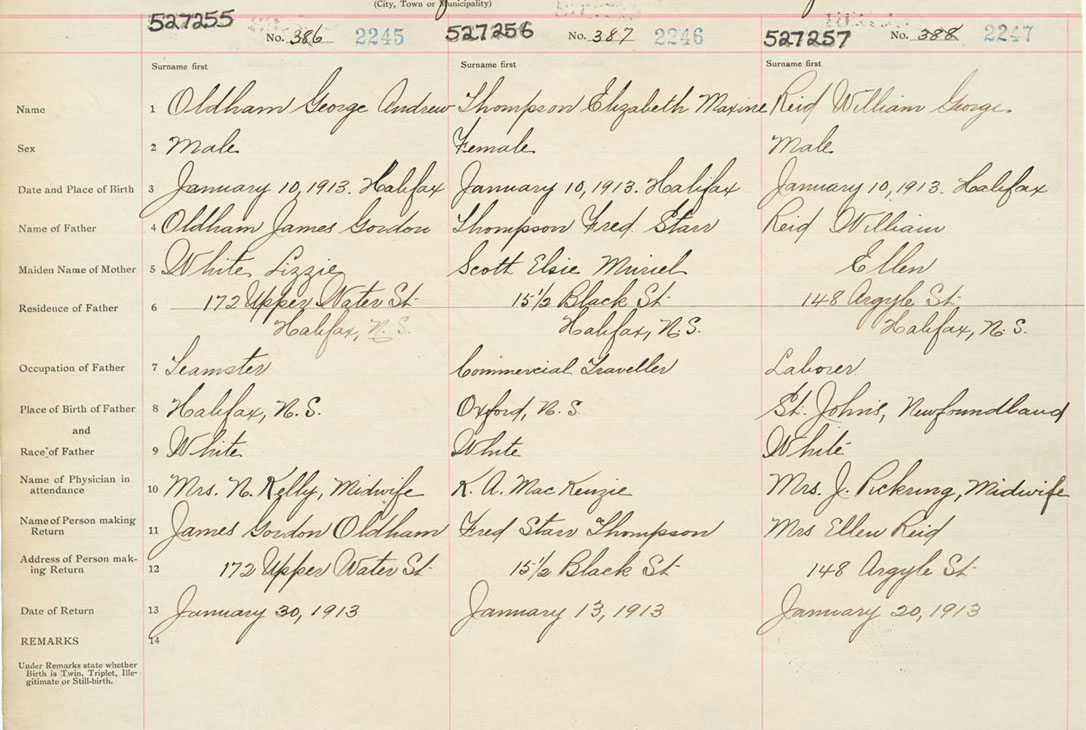 (City, Town or Municipality)
527255 No. 386 2245 527256 No. 387 2246 527257 No. 388 2247
Surname first Surname first Surname first
Name 1 Oldham George Andrew Thompson Elizabeth Maxine Reid William George.
Sex 2 Male Female Male
Date and Place of Birth 3 January 10, 1913. Halifax January 10, 1913. Halifax January 10, 1913. Halifax
Name of Father 4 Oldham James Gordon Thompson Fred Starr Reid William
Maiden Name of Mother 5 White Lizzie Scott Elsie Muriel Ellen
Residence of Father 6 172 Upper Water St. 15 1/2 Black St. 148 Argyle St.
Halifax, N.S. Halifax, N.S. Halifax, N.S.
Occupation of Father 7 Teamster Commercial Traveller Laborer
Place of Birth of Father 8 Halifax, N.S. Oxford, N.S. St. John's, Newfoundland
and
Race of Father 9 White White White
Name of Physician in
attendance 10 Mrs. N. Kelly, Midwife K. A. MacKenzie Mrs. J. Pickring, Midwife
Name of Person making
Return 11 James Gordon Oldham Fred Starr Thompson Mrs Ellen Reid
Address of Person mak-
ing Return 12 172 Upper Water St. 15 1/2 Black St. 148 Argyle St.
Date of Return 13 January 30, 1913 January 13, 1913 January 20, 1913
REMARKS 14
Under Remarks state whether
Birth is Twin, Triplet, Ille-
gitimate or Still-birth.